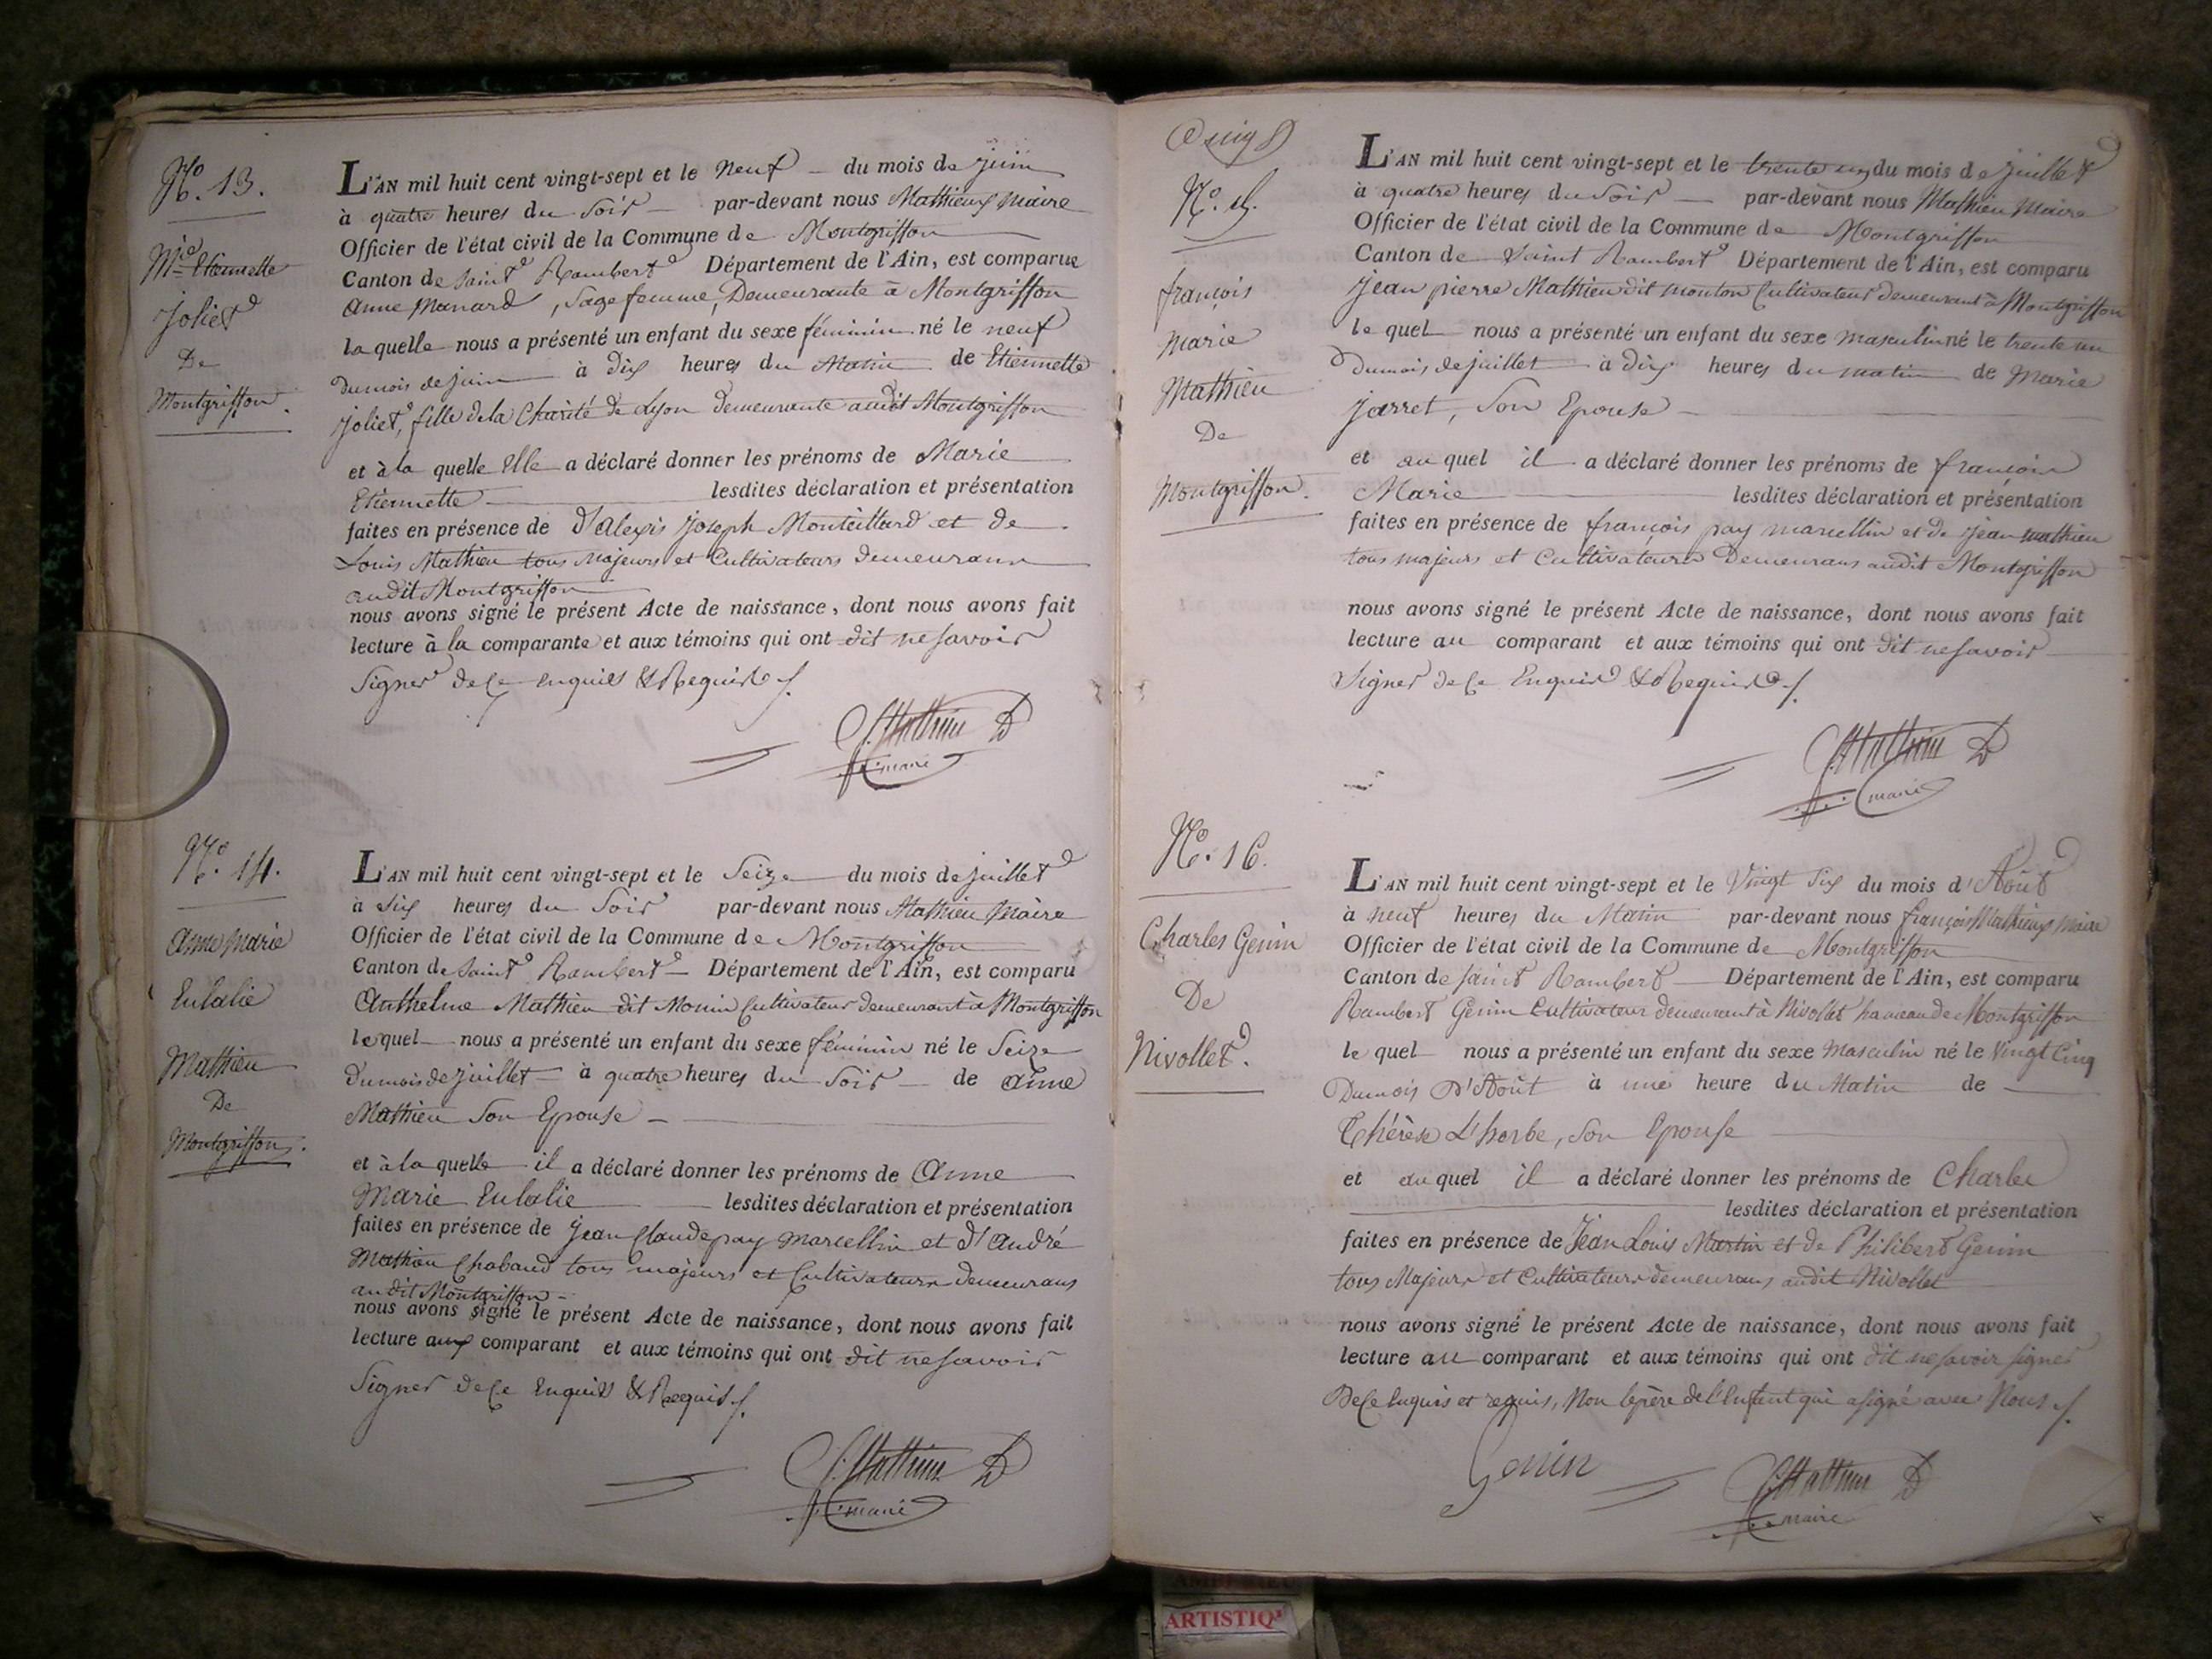 N.º 13.
M.ie Etiennette
Joliet
De
Montgriffon.
L'AN mil huit cent vingt-sept et le neuf du mois de juin
à quatre heures du Soir par-devant nous Mathieux maire
Officier de l'état civil de la Commune de Montgriffon
Canton de Saint Rambert Département de l'Ain, est comparue
Anne Manard, Sage femme, Demeurante à Montgriffon
la quelle nous a présenté un enfant du sexe féminin né le neuf
Dumois de juin à dix heures du Matin de Etiennette
Joliet, fille de la Charité de Lyon demeurante audit Montgriffon
et à la quelle Elle a déclaré donner les prénoms de Marie
Etiennette lesdites déclaration et présentation
faites en présence de d'Alexis Joseph Monteillard et de
Louis Mathieu tous Majeurs et Cultivateurs demeurans
audit Montgriffon
nous avons signé le présent Acte de naissance, dont nous avons fait
lecture à la comparante et aux témoins qui ont dit ne savoir
Signer de ce enquis & Requis
Mathieu
maire
N.º 14.
Anne Marie
Eulalie
Mathieu
De
Montgriffon.
L'AN mil huit cent vingt-sept et le Seize du mois de juillet
à Six heures du Soir par-devant nous Mathieu Maire
Officier de l'état civil de la Commune de Montgriffon
Canton de Saint Rambert Département de l'Ain, est comparu
Anthelme Mathieu dit Monin Cultivateur demeurant à Montgriffon
le quel nous a présenté un enfant du sexe féminin né le Seize
Dumois de juillet à quatre heures du Soir de Anne
Mathieu Son Epouse
et à la quelle il a déclaré donner les prénoms de Anne
Marie Eulalie lesdites déclaration et présentation
faites en présence de Jean Claude pay Marcellin et d'André
Mathieu Chaband tous majeurs et Cultivateurs demeurans
audit Montgriffon
nous avons signé le présent Acte de naissance, dont nous avons fait
lecture aux comparant et aux témoins qui ont dit ne savoir
Signer de ce Enquis & Requis
Mathieu
maire
N.º 15.
françois
marie
Mathieu
De
Montgriffon.
L'AN mil huit cent vingt-sept et le trente un du mois de juillet
à quatre heures du Soir par-devant nous Mathieu Maire
Officier de l'état civil de la Commune de Montgriffon
Canton de Saint Rambert Département de l'Ain, est comparu
Jean pierre Mathieu dit mouton Cultivateur demeurant à Montgriffon
le quel nous a présenté un enfant du sexe masculin né le trente un
Dumois de juillet à dix heures du matin de Marie
Jarret, Son Epouse
et au quel il a déclaré donner les prénoms de françois
Marie lesdites déclaration et présentation
faites en présence de françois pay marcellin et de Jean mathieu
tous majeurs et Cultivateurs Demeurans audit Montgriffon
nous avons signé le présent Acte de naissance, dont nous avons fait
lecture au comparant et aux témoins qui ont dit ne savoir
Signer de ce Enquis & Requis
Mathieu
maire
N.º 16.
Charles Genin
De
Nivollet.
L'AN mil huit cent vingt-sept et le Vingt Six du mois d'Août
à neuf heures du Matin par-devant nous françois Mathieux Maire
Officier de l'état civil de la Commune de Montgriffon
Canton de Saint Rambert Département de l'Ain, est comparu
Rambert Genin Cultivateur demeurant à Nivollet hameau de Montgriffon
le quel nous a présenté un enfant du sexe Masculin né le Vingt Cinq
Dumois D'Août à une heure du Matin de
Thérèse L'horbe, Son Epouse
et au quel il a déclaré donner les prénoms de Charles
lesdites déclaration et présentation
faites en présence de Jean Louis Martin et de Philibert Genin
tous Majeurs et Cultivateurs demeurans audit Nivollet
nous avons signé le présent Acte de naissance, dont nous avons fait
lecture au comparant et aux témoins qui ont dit ne savoir signer
De ce Enquis et requis, Non le père de l'Enfant qui a signé avec Nous
Genin
Mathieu
maire
ARTISTIQ